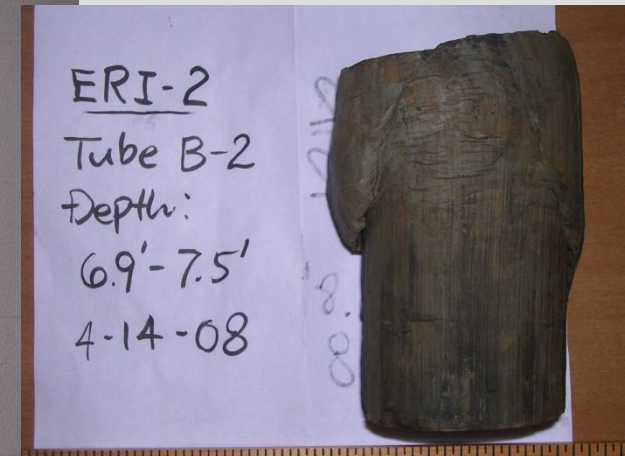 ERI-2
Tube B-2
Depth:
6.9'-7.5'
4-14-08